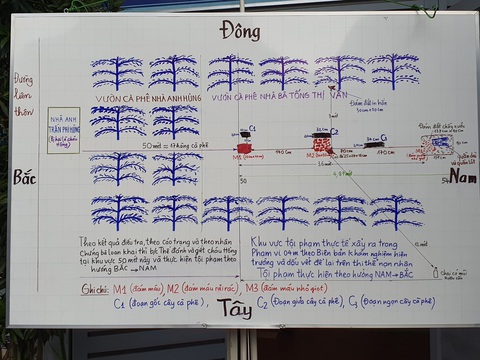 Đông
Đường
liên
thôn
VƯỜN CÀ PHÊ NHÀ ANH HÙNG
VƯỜN CÀ PHÊ NHÀ BÀ TỐNG THỊ VÂN
NHÀ ANH
TRẦN PHI HÙNG
50 mét = 17 hàng cà phê
C1
C2
C3
M1
M2
M3
170 cm
190 cm
170 cm
Bắc
50
54
Nam
Theo kết quả điều tra, theo cáo trạng và theo nhân
chứng bà Loan khai thì bà Thế đánh và giết cháu Hồng
tại khu vực 50 mét này và thực hiện tội phạm theo
hướng BẮC → NAM
Khu vực tội phạm thực tế xảy ra trong
Phạm vi 04m theo Biên bản khám nghiệm hiện
trường và dấu vết để lại trên thi thể nạn nhân
Tội phạm thực hiện theo hướng NAM → BẮC
Ghi chú: M1 (đám máu), M2 (đám máu rải rác), M3 (đám máu nhỏ giọt)
C1 (Đoạn gốc cây cà phê), C2 (Đoạn giữa cây cà phê), C3 (Đoạn ngọn cây cà phê)
Tây